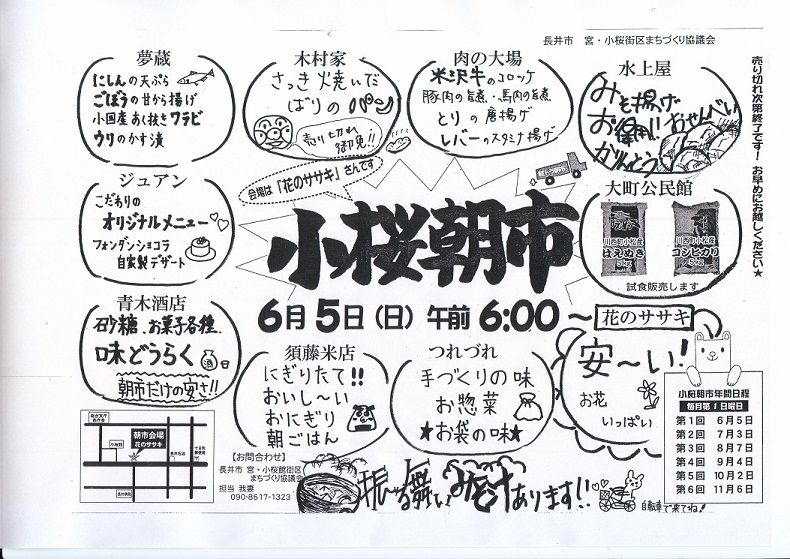 長井市 宮・小桜街区まちづくり協議会
夢蔵
にしんの天ぷら
ごぼうの甘から揚げ
小国産あく抜きワラビ
ウリのかす漬
木村家
さっき焼いだ
ばりの パン
売り切れ
御免!!
肉の大場
米沢牛のコロッケ
豚肉の旨煮・馬肉の旨煮
とりの唐揚げ
レバーのスタミナ揚げ
水上屋
みそ揚げ
お得用!おせんべい
かりんとう
売り切れ次第終了です! お早めにお越しください★
ジュアン
こだわりの
オリジナルメニュー
フォンダンショコラ
自家製デザート
会場は「花のササキ」さんです
小桜朝市
6月5日(日)午前6:00～
大町公民館
川西町小松産
はえぬき
5kg
川西町小松産
コシヒカリ
5kg
試食販売します
青木酒店
砂糖、お菓子各種
味どうらく
酒
朝市だけの安さ!!
須藤米店
にぎりたて!!
おいし～い
おにぎり
朝ごはん
つれづれ
手づくりの味
お惣菜
★お袋の味★
花のササキ
安～い!
お花
いっぱい
小桜朝市年間日程
毎月第1日曜日
第1回 6月5日
第2回 7月3日
第3回 8月7日
第4回 9月4日
第5回 10月2日
第6回 11月6日
朝市会場
花のササキ
【お問合わせ】
長井市 宮・小桜館街区
まちづくり協議会
担当 我妻
090-8617-1323
振る舞いみそ汁あります!!
自転車で来てね!